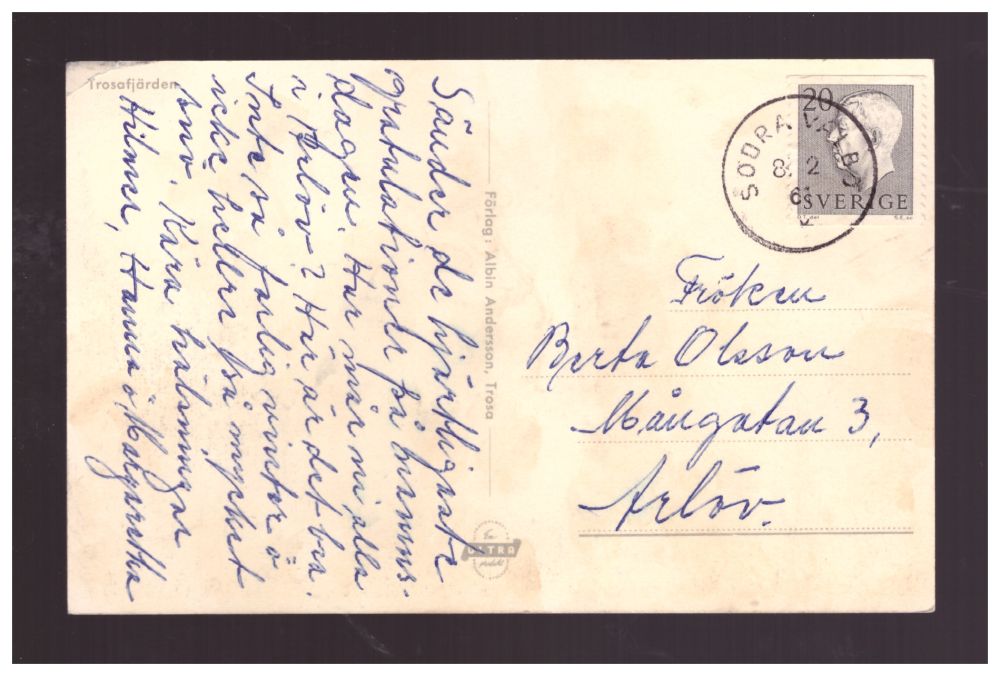 Trosafjärden
Sänder de hjärtligaste
gratulationer på namns-
dagen. Hur mår ni alla
i Arlöv? Här är det bra.
Inte så farlig vinter o
icke heller så mycket
snö. Kära hälsningar
Hilmer, Hanna o Margaretha
Förlag: Albin Andersson, Trosa
En
ULTRA
produkt
20
SVERIGE
SÖDRA
8. 2
6
K
Fröken
Berta Olsson
Mångatan 3,
Arlöv.